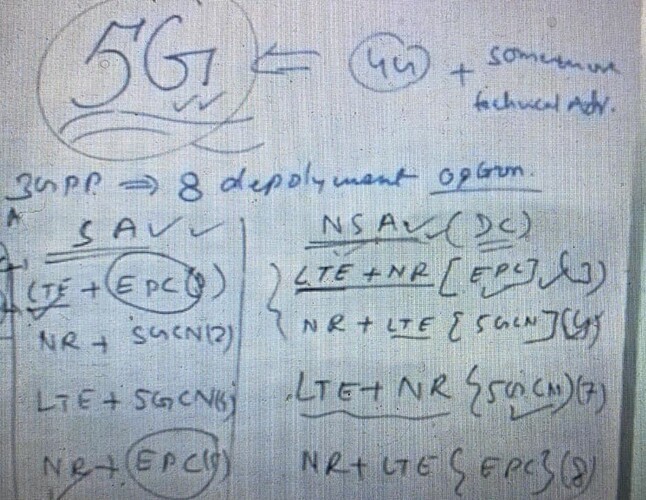 5G ⇐ 4G + some more
technical Adv.
3GPP ⇒ 8 depolyment option.
SA ✓✓
LTE + EPC(1)
NR + 5GCN(2)
LTE + 5GCN(5)
NR + EPC(6)
NSA ✓ (DC)
LTE + NR [EPC] (3)
NR + LTE {5GCN](4)
LTE + NR {5GCN)(7)
NR + LTE {EPC}(8)